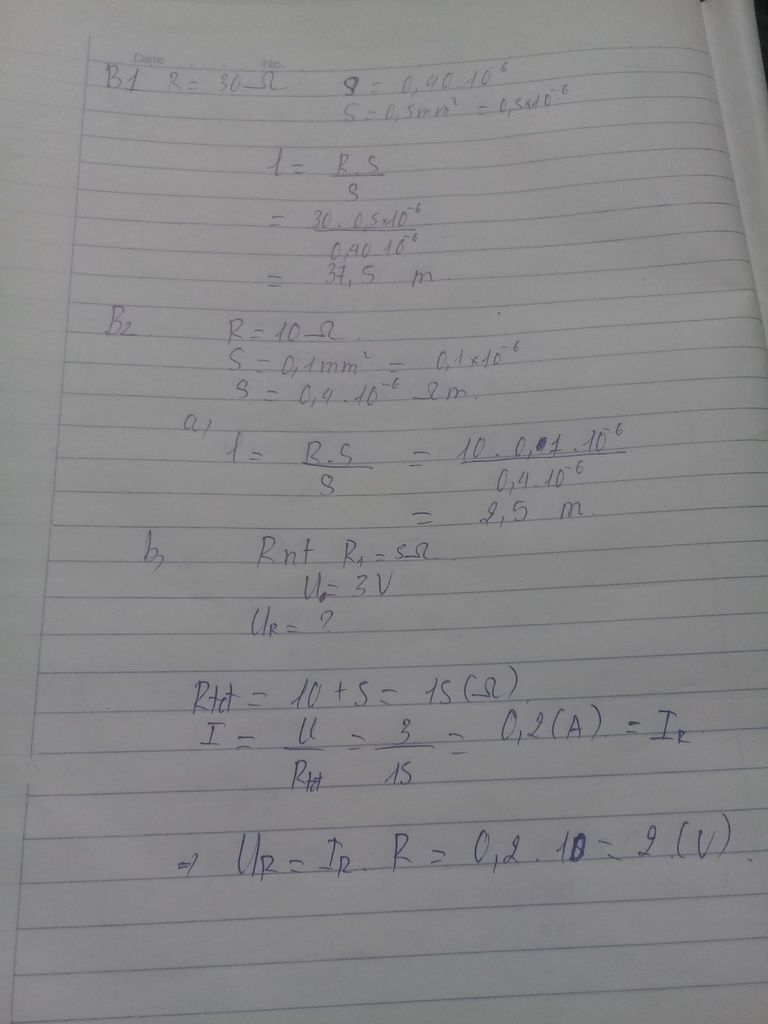 Date No.
B1 R = 30 Ω ρ = 0,40.10⁻⁶
S = 0,5mm² = 0,5×10⁻⁶
l = R.S / ρ
= 30. 0,5×10⁻⁶ / 0,40.10⁻⁶
= 37,5 m
B2 R = 10 Ω
S = 0,1mm² = 0,1×10⁻⁶
ρ = 0,4.10⁻⁶ Ωm.
a, l = R.S / ρ = 10. 0,1.10⁻⁶ / 0,4.10⁻⁶
= 2,5 m.
b, R nt R₁ = 5Ω
U = 3V
U_R = ?
Rtđ = 10 + 5 = 15 (Ω)
I = U / Rtđ = 3 / 15 = 0,2 (A) = I_R
⇒ U_R = I_R. R = 0,2. 10 = 2 (V)